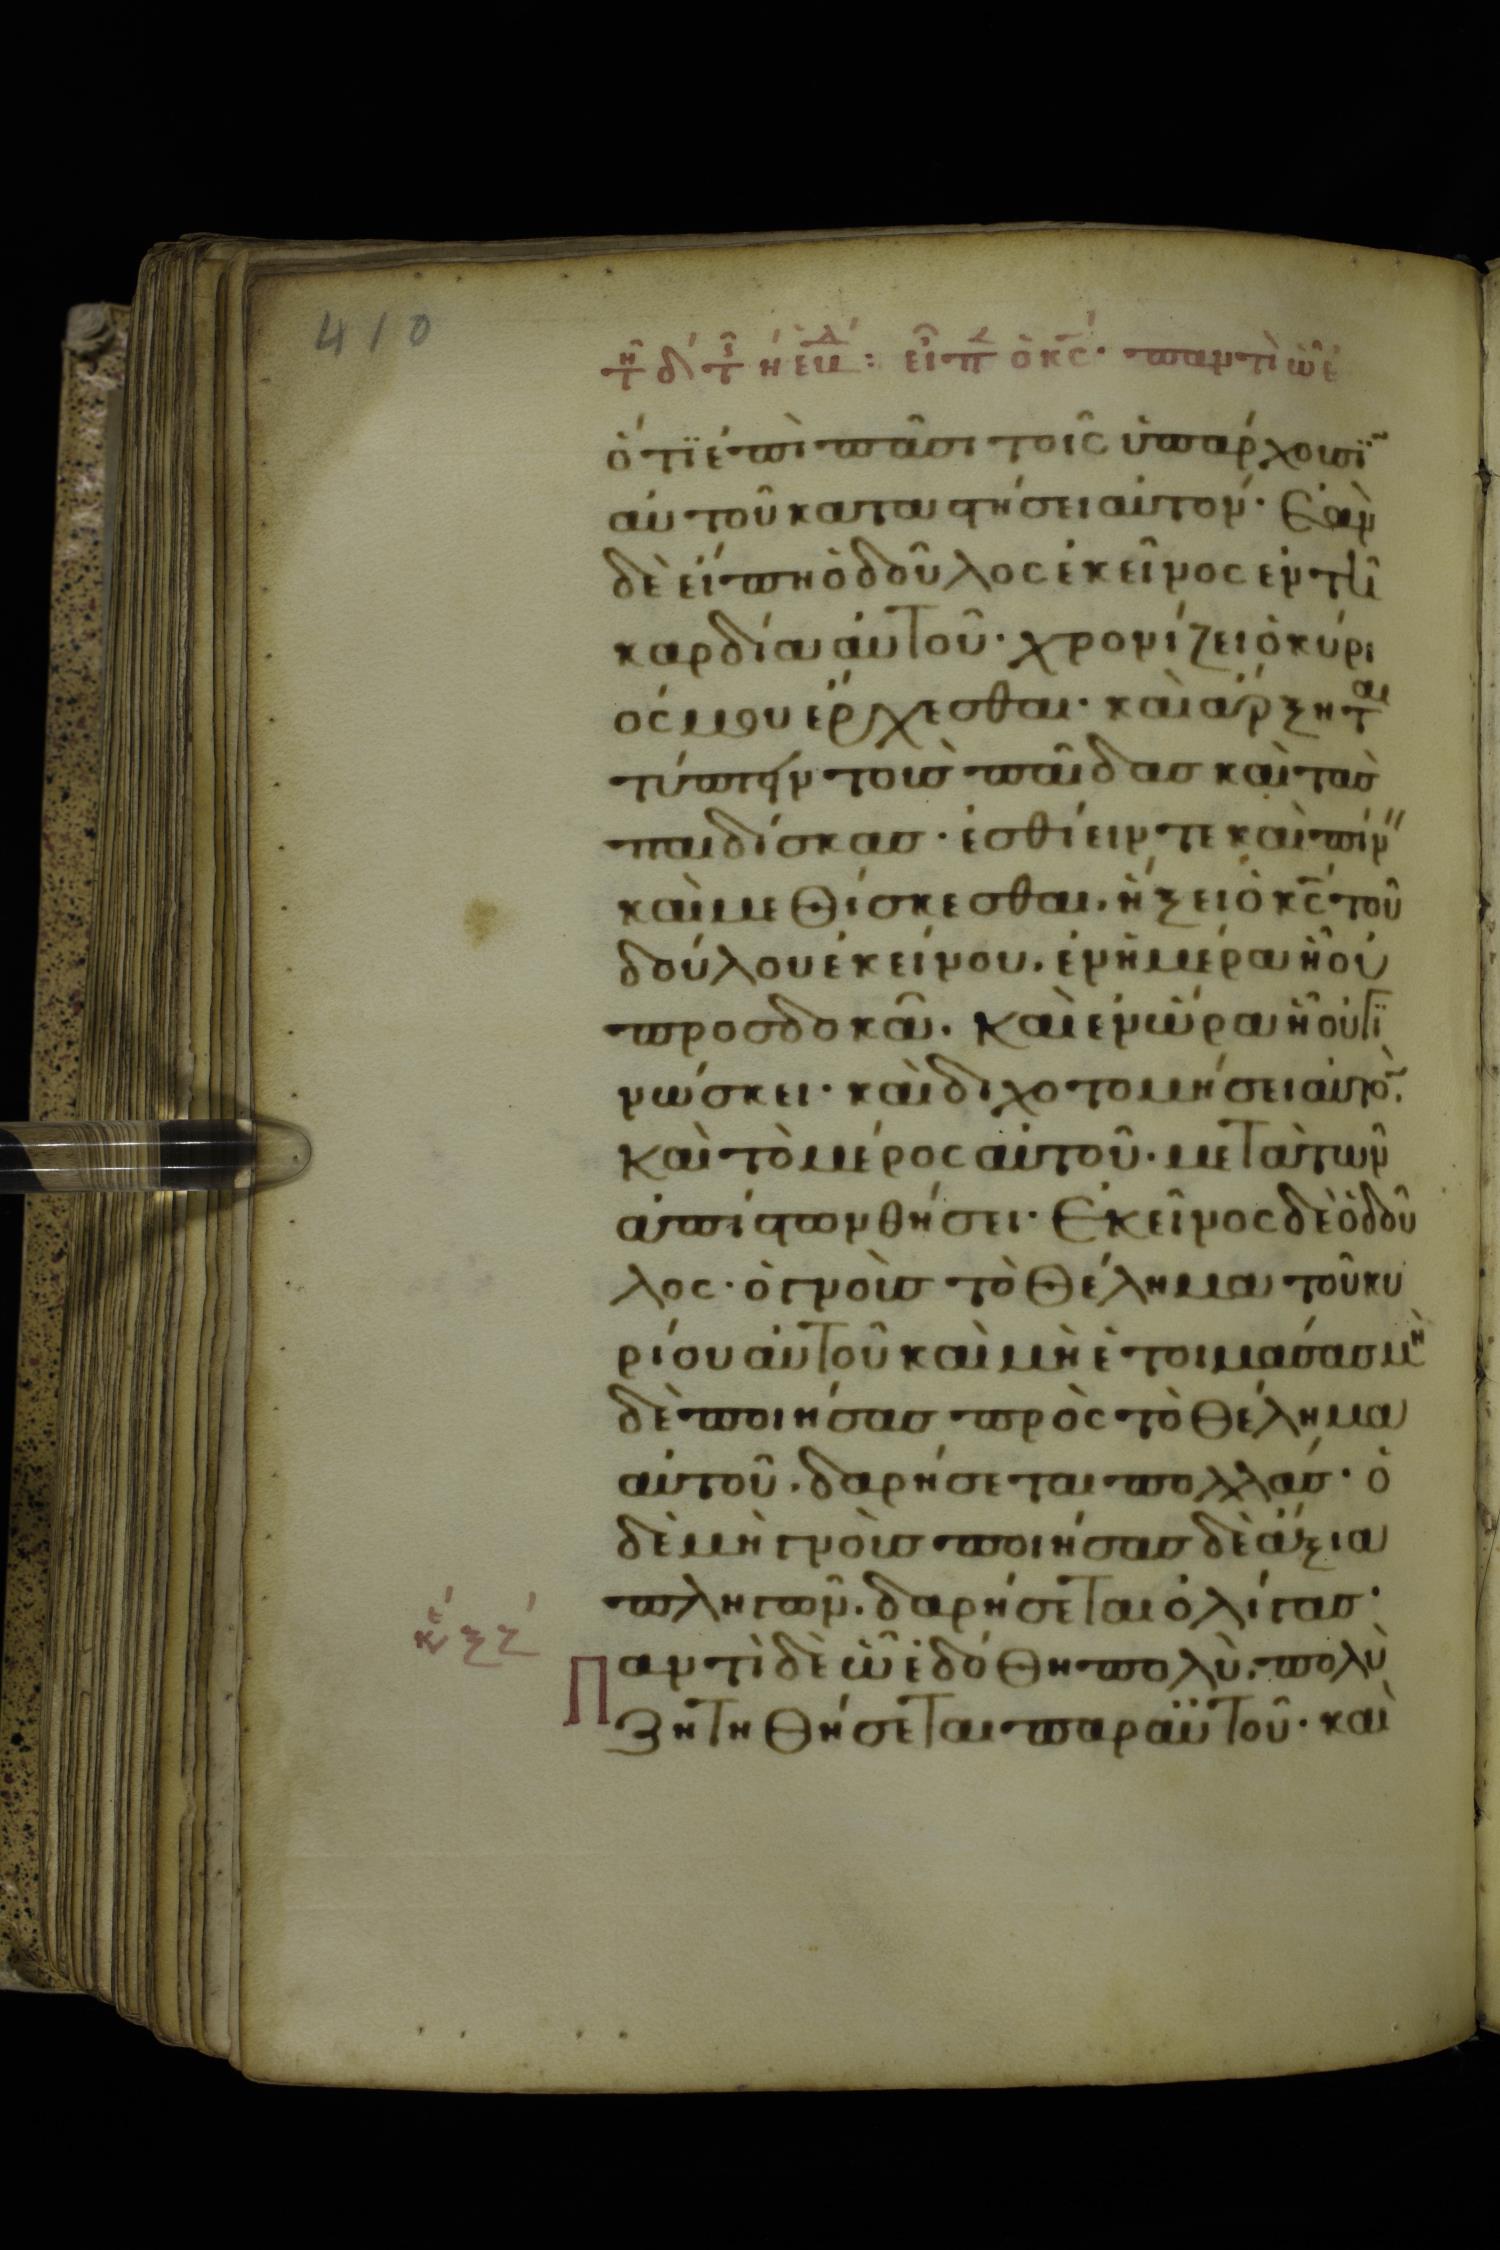 410
ὅτι ἐπὶ πᾶσι τοῖς ὑπάρχουσῖ
αὐτοῦ καταστήσει αὐτόν· Ἐὰν
δὲ εἴπη ὁ δοῦλος ἐκεῖνος ἐν τῆ
καρδία αὐτοῦ· χρονίζει ὁ κύρι
ός μου ἔρχεσθαι· καὶ ἄρξηται
τύπτην τοὺσ παῖδασ καὶ τασ
παιδίσκασ· ἐσθίειν τε καὶ πίν
καὶ μεθίσκεσθαι. ἥξει ὁ κς τοῦ
δούλου ἐκείνου. ἐν ἡμέρα ἧ οὐ
προσδοκᾶ. καὶ ἐν ὥρα ἧ οὐ γι
νώσκει· καὶ διχοτομήσει αὐτὸ.
καὶ τὸ μέρος αὐτοῦ· μετὰ τῶν
ἀπίστων θήσει· Ἐκεῖνος δὲ ὁ δοῦ
λος· ὁ γνοὺσ τὸ θέλημα τοῦ κυ
ρίου αὐτοῦ καὶ μὴ ἑτοιμάσασ μὴ
δὲ ποιήσασ πρὸς τὸ θέλημα
αὐτοῦ. δαρήσεται πολλάσ· ὁ
δὲ μὴ γνοὺσ ποιήσασ δὲ ἄξια
πληγῶν. δαρήσεται ὀλίγασ·
Παντὶ δὲ ὧ ἐδόθη πολὺ. πολὺ
ζητηθήσεται παρ αὐτοῦ· καὶ